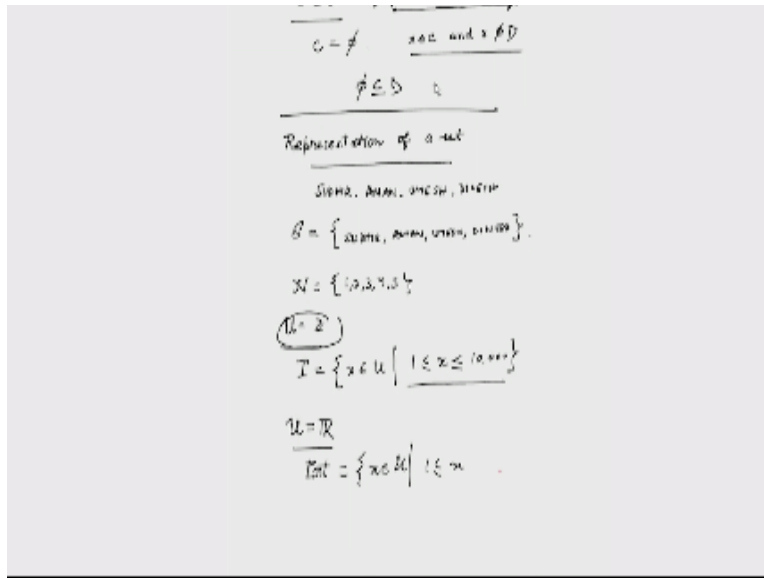 C = ϕ x∈C and x ∉ D
ϕ ⊆ D
Representation of a set
AMAN, UMESH, DINESH
= { AMAN, UMESH, DINESH }.
N = {1,2,3,4,5}
U = Z
I = {x ∈ U | 1 ≤ x ≤ 10,000}
U = ℝ
Int = {x ∈ U | 1 ≤ x